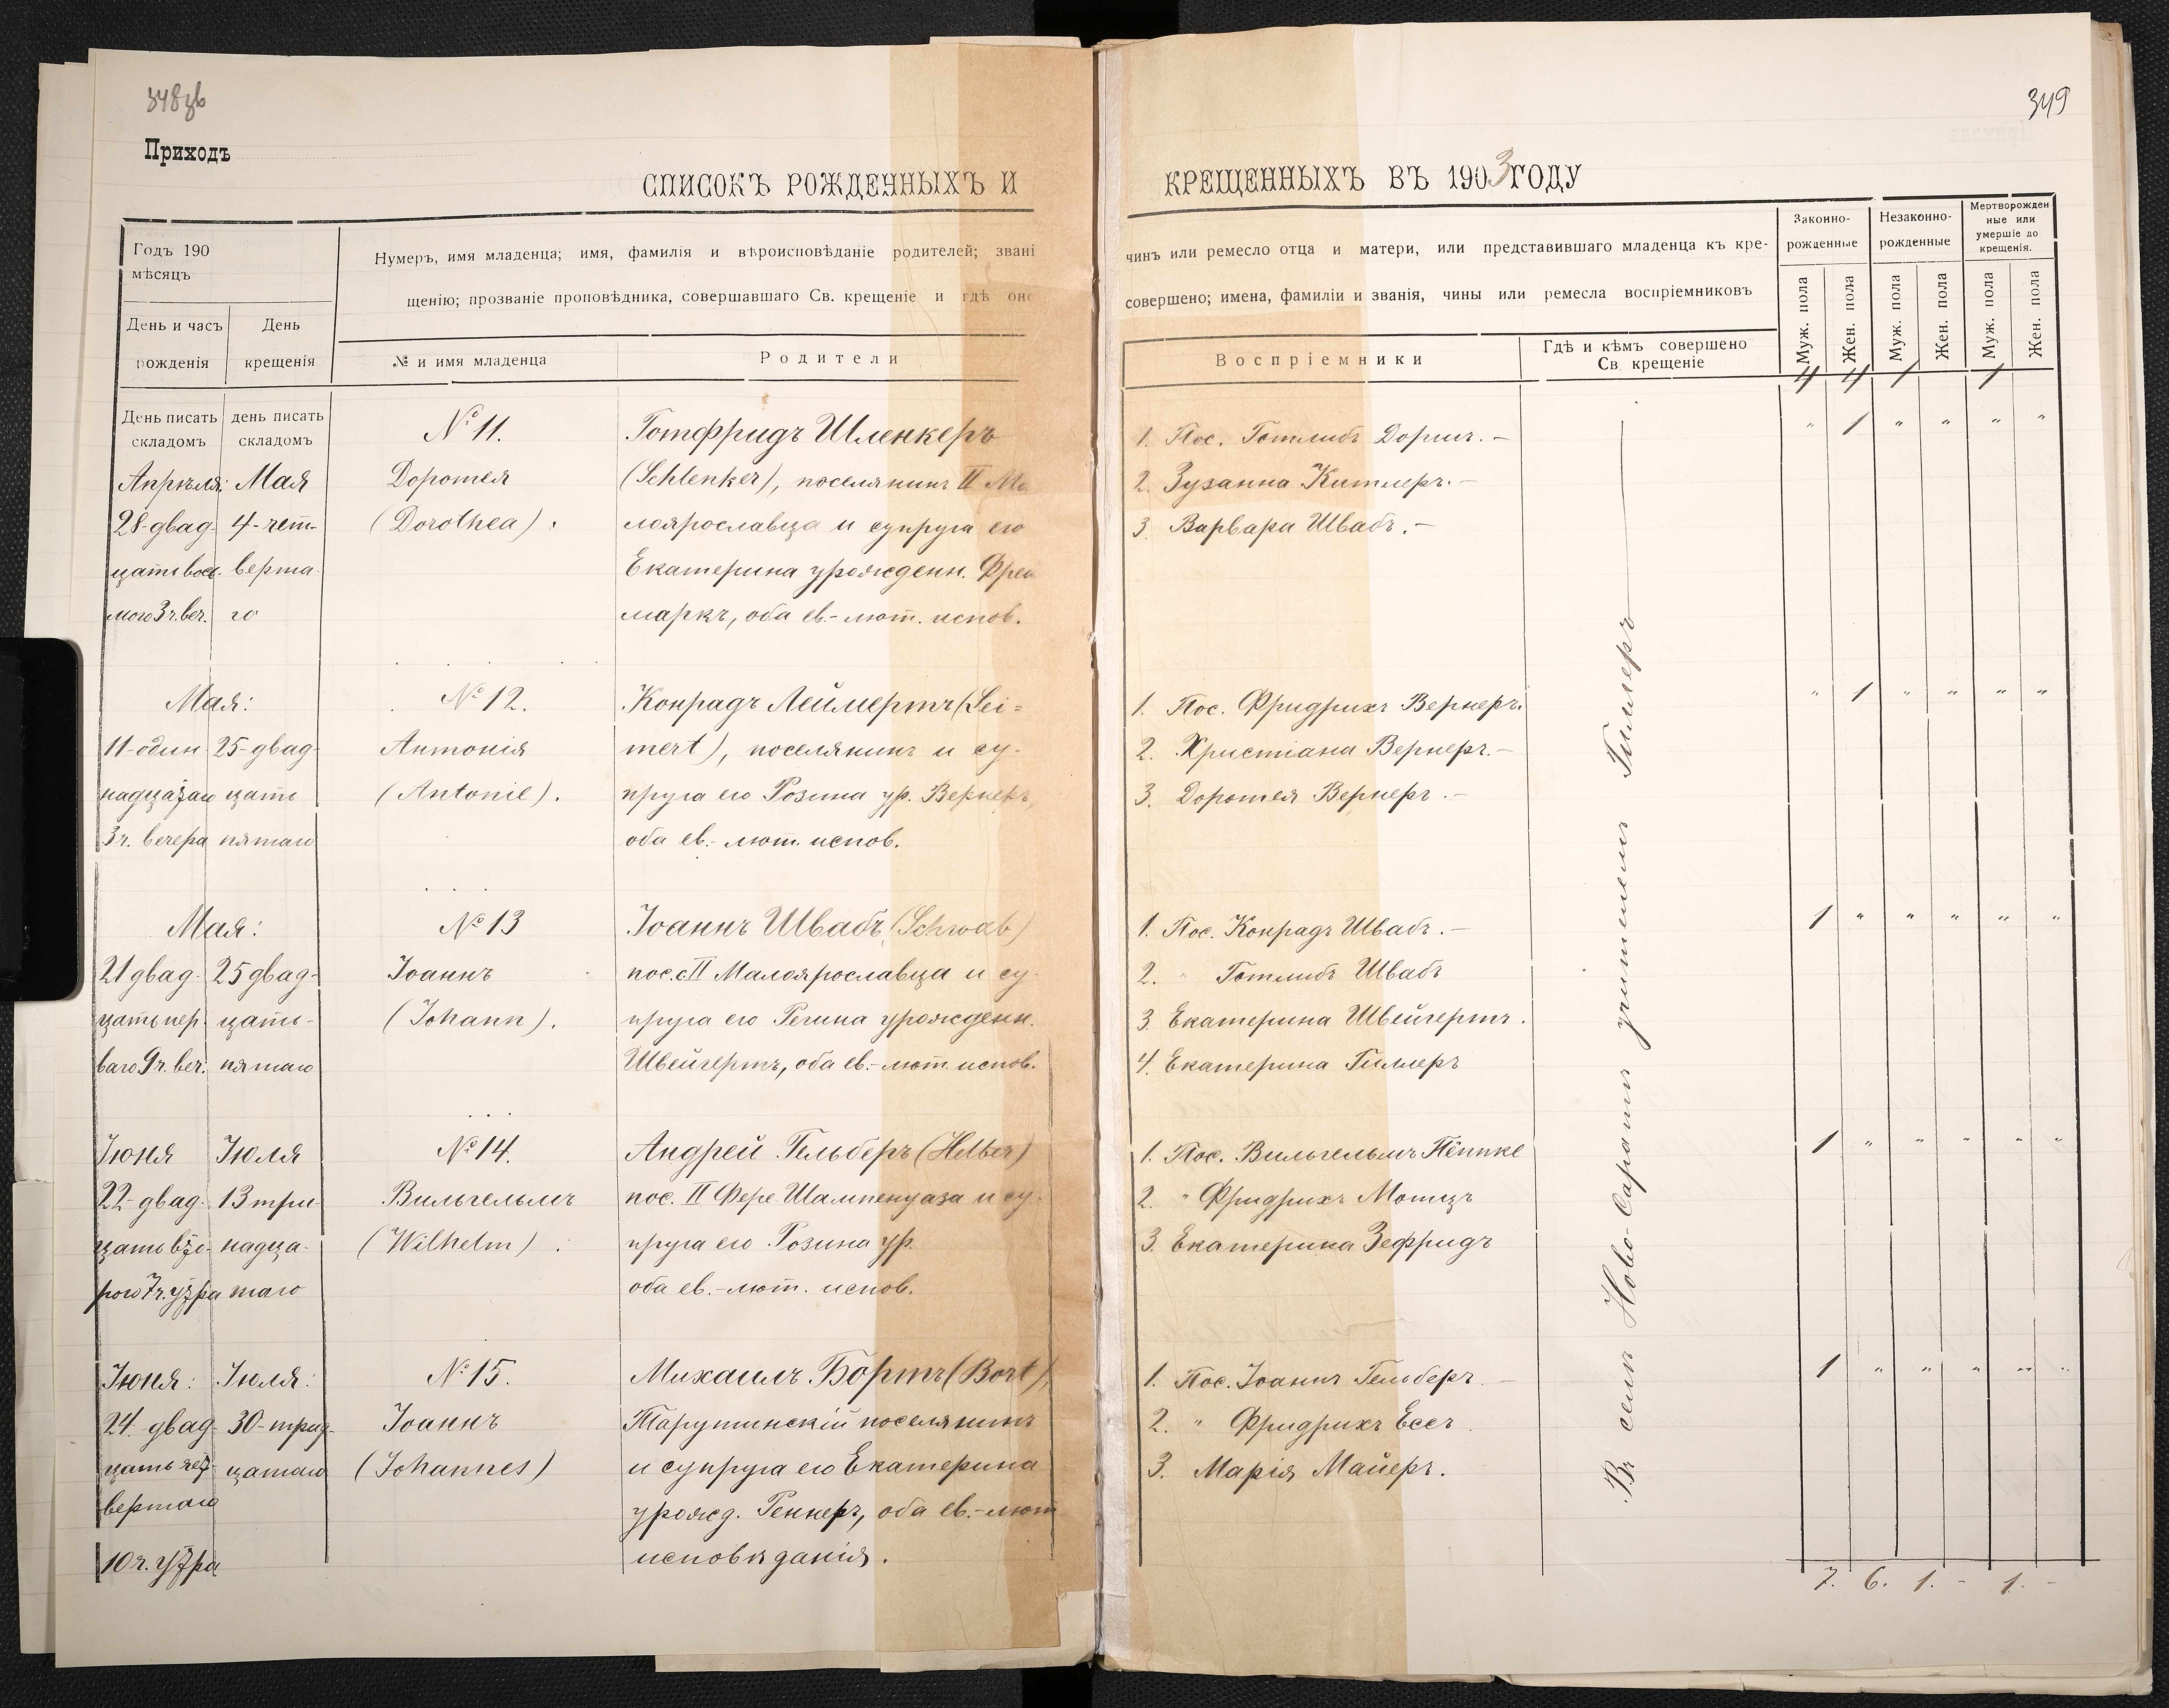 348зв
Приходъ
СПИСОКЪ РОЖДЕННЫХЪ И
Годъ 190
мѣсяцъ
Нумеръ, имя младенца; имя, фамилія и вѣроисповѣданіе родителей; звані
щенію; прозваніе проповѣдника, совершавшаго Св. крещеніе и гдѣ оно
День и часъ
рожденія
День
крещенія
№ и имя младенца
Родители
День писать
складомъ
день писать
складомъ
№ 11.
Готфридъ Шленкеръ
Апрѣля: Мая
Доротея
(Schlenker), поселянинъ II Ма
28-двад- 4-чет-
(Dorothea).
лоярославца и супруга его
цатьвось. верта-
Екатерина урожденн. Фрей
мого 3ч. веч. го
маркъ, оба ев.-лют. испов.
Мая:
№ 12.
Конрадъ Леймертъ (Lei=
11-один- 25-двад-
Антонія
mert), поселянинъ и су-
надцатаго цать
(Antonie).
пруга его Розина ур. Вернеръ,
3ч. вечера пятаго
оба ев.-лют. испов.
Мая:
№ 13
Іоаннъ Швабъ (Schwab)
21 двад- 25 двад-
Іоаннъ
пос. с II Малоярославца и су-
цать пер- цать-
(Johann).
пруга его Регина урожденн.
ваго 9ч. веч. пятаго
Швейгертъ, оба ев.-лют. испов.
Іюня Іюля
№ 14.
Андрей Гельберъ (Helber)
22-двад- 13 три-
Вильгельмъ
пос. II Фере Шампенуаза и су-
цать вто- надца-
(Wilhelm).
пруга его Розина ур.
рого 7ч. утра таго
оба ев.-лют. испов.
Іюня: Іюля:
№ 15.
Михаилъ Бортъ (Bort),
24. двад- 30-трид-
Іоаннъ
Тарутинскій поселянинъ
цать чет- цатаго
(Johannes)
и супруга его Екатерина
вертаго
урожд. Реннеръ, оба ев.-лют
10ч. утра
исповѣданія.
349
КРЕЩЕННЫХЪ ВЪ 1903 ГОДУ
чинъ или ремесло отца и матери, или представившаго младенца къ кре-
совершено; имена, фамиліи и званія, чины или ремесла воспріемниковъ
Воспріемники
Гдѣ и кѣмъ совершено
Св. крещеніе
Законно-
рожденные
Незаконно-
рожденные
Мертворожден
ные или
умершіе до
крещенія.
Муж. пола
Жен. пола
Муж. пола
Жен. пола
Муж. пола
Жен. пола
4 4 1 1
1. Пос. Готлибъ Доршъ.-
" 1 " " " "
2. Зузанна Китлеръ.-
3. Варвара Швабъ.-
1. Пос. Фридрихъ Вернеръ.
" 1 " " " "
2. Христіана Вернеръ.-
3. Доротея Вернеръ.-
1. Пос. Конрадъ Швабъ.-
1 " " " " "
2. " Готлибъ Швабъ
3. Екатерина Швейгертъ.
4. Екатерина Гиллеръ
1. Пос. Вильгельмъ Пёппке
1 " " " " "
2. " Фридрихъ Мотцъ
3. Екатерина Зефридъ
1. Пос. Іоаннъ Гельберъ.-
1 " " " " "
2. " Фридрихъ Ессъ.
3. Марія Майеръ.
Въ селѣ Ново-Саратѣ учителемъ Гиллеръ
7. 6. 1. - 1. -